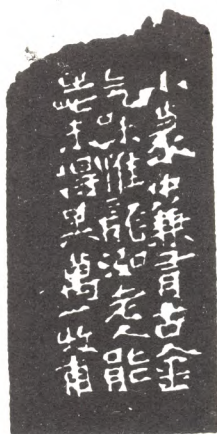 小篆中兼有古金
气味惟龍泓老人能
此未得其萬一牧甫